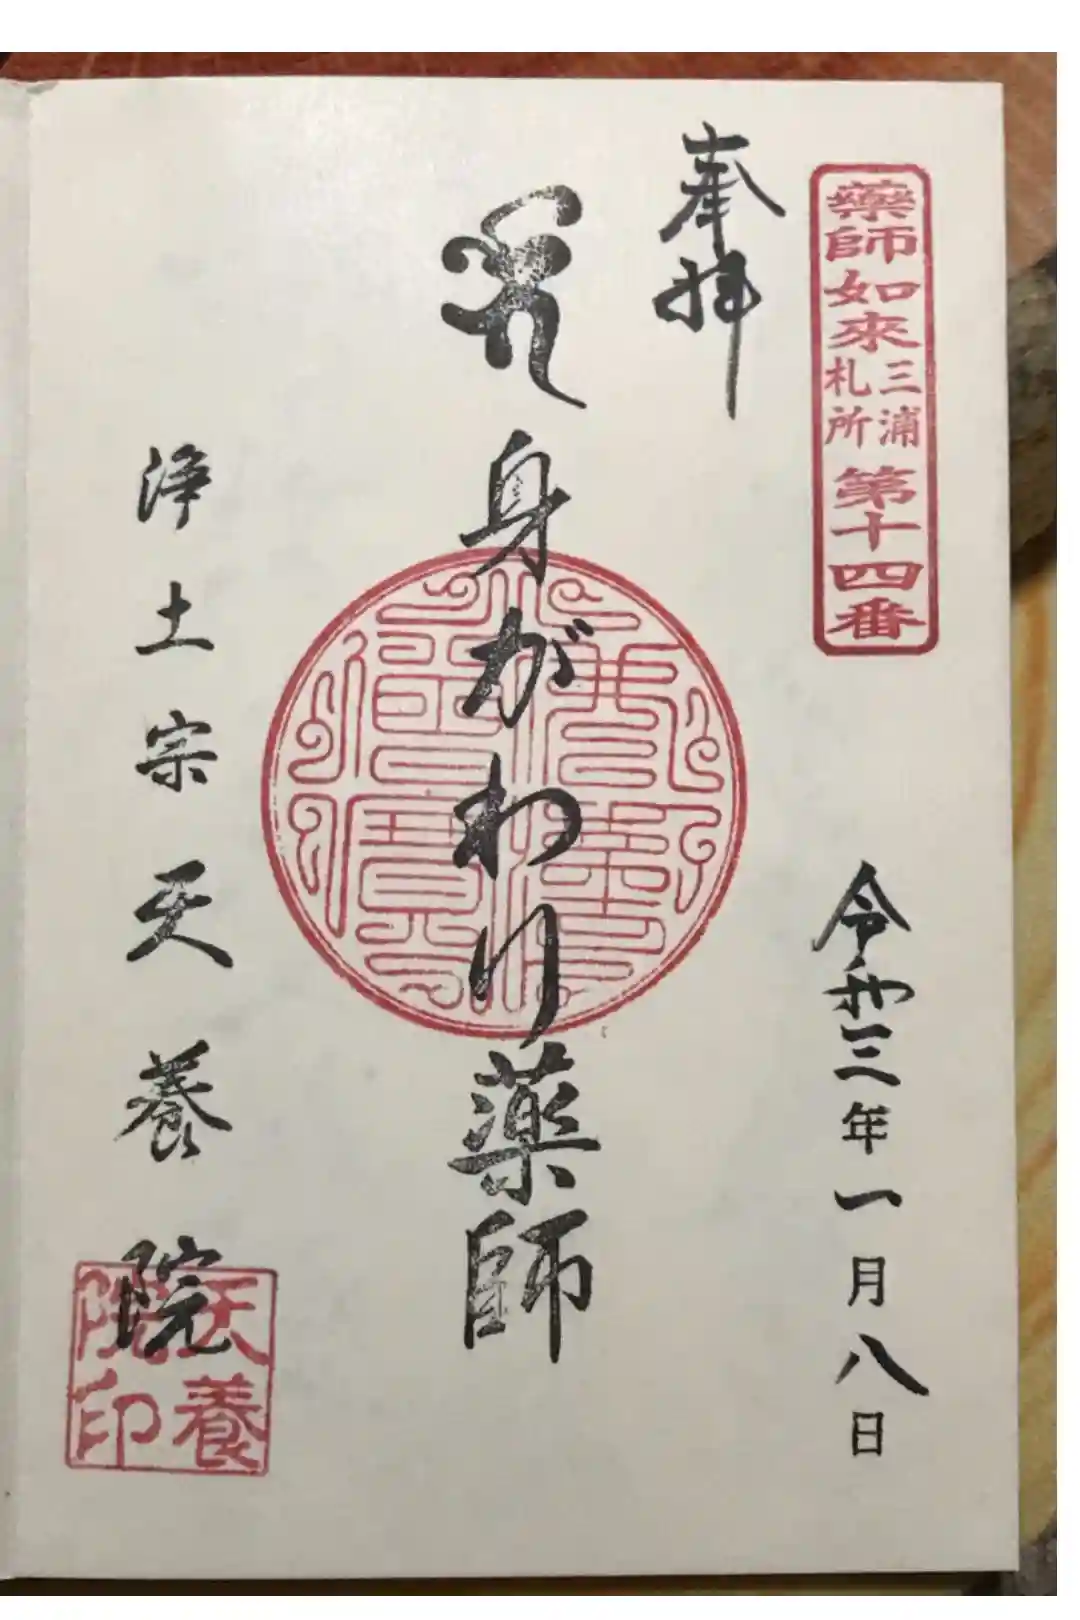 薬師如来三浦札所第十四番
奉拝
令和三年一月八日
身がわり薬師
浄土宗天養院
天養院印